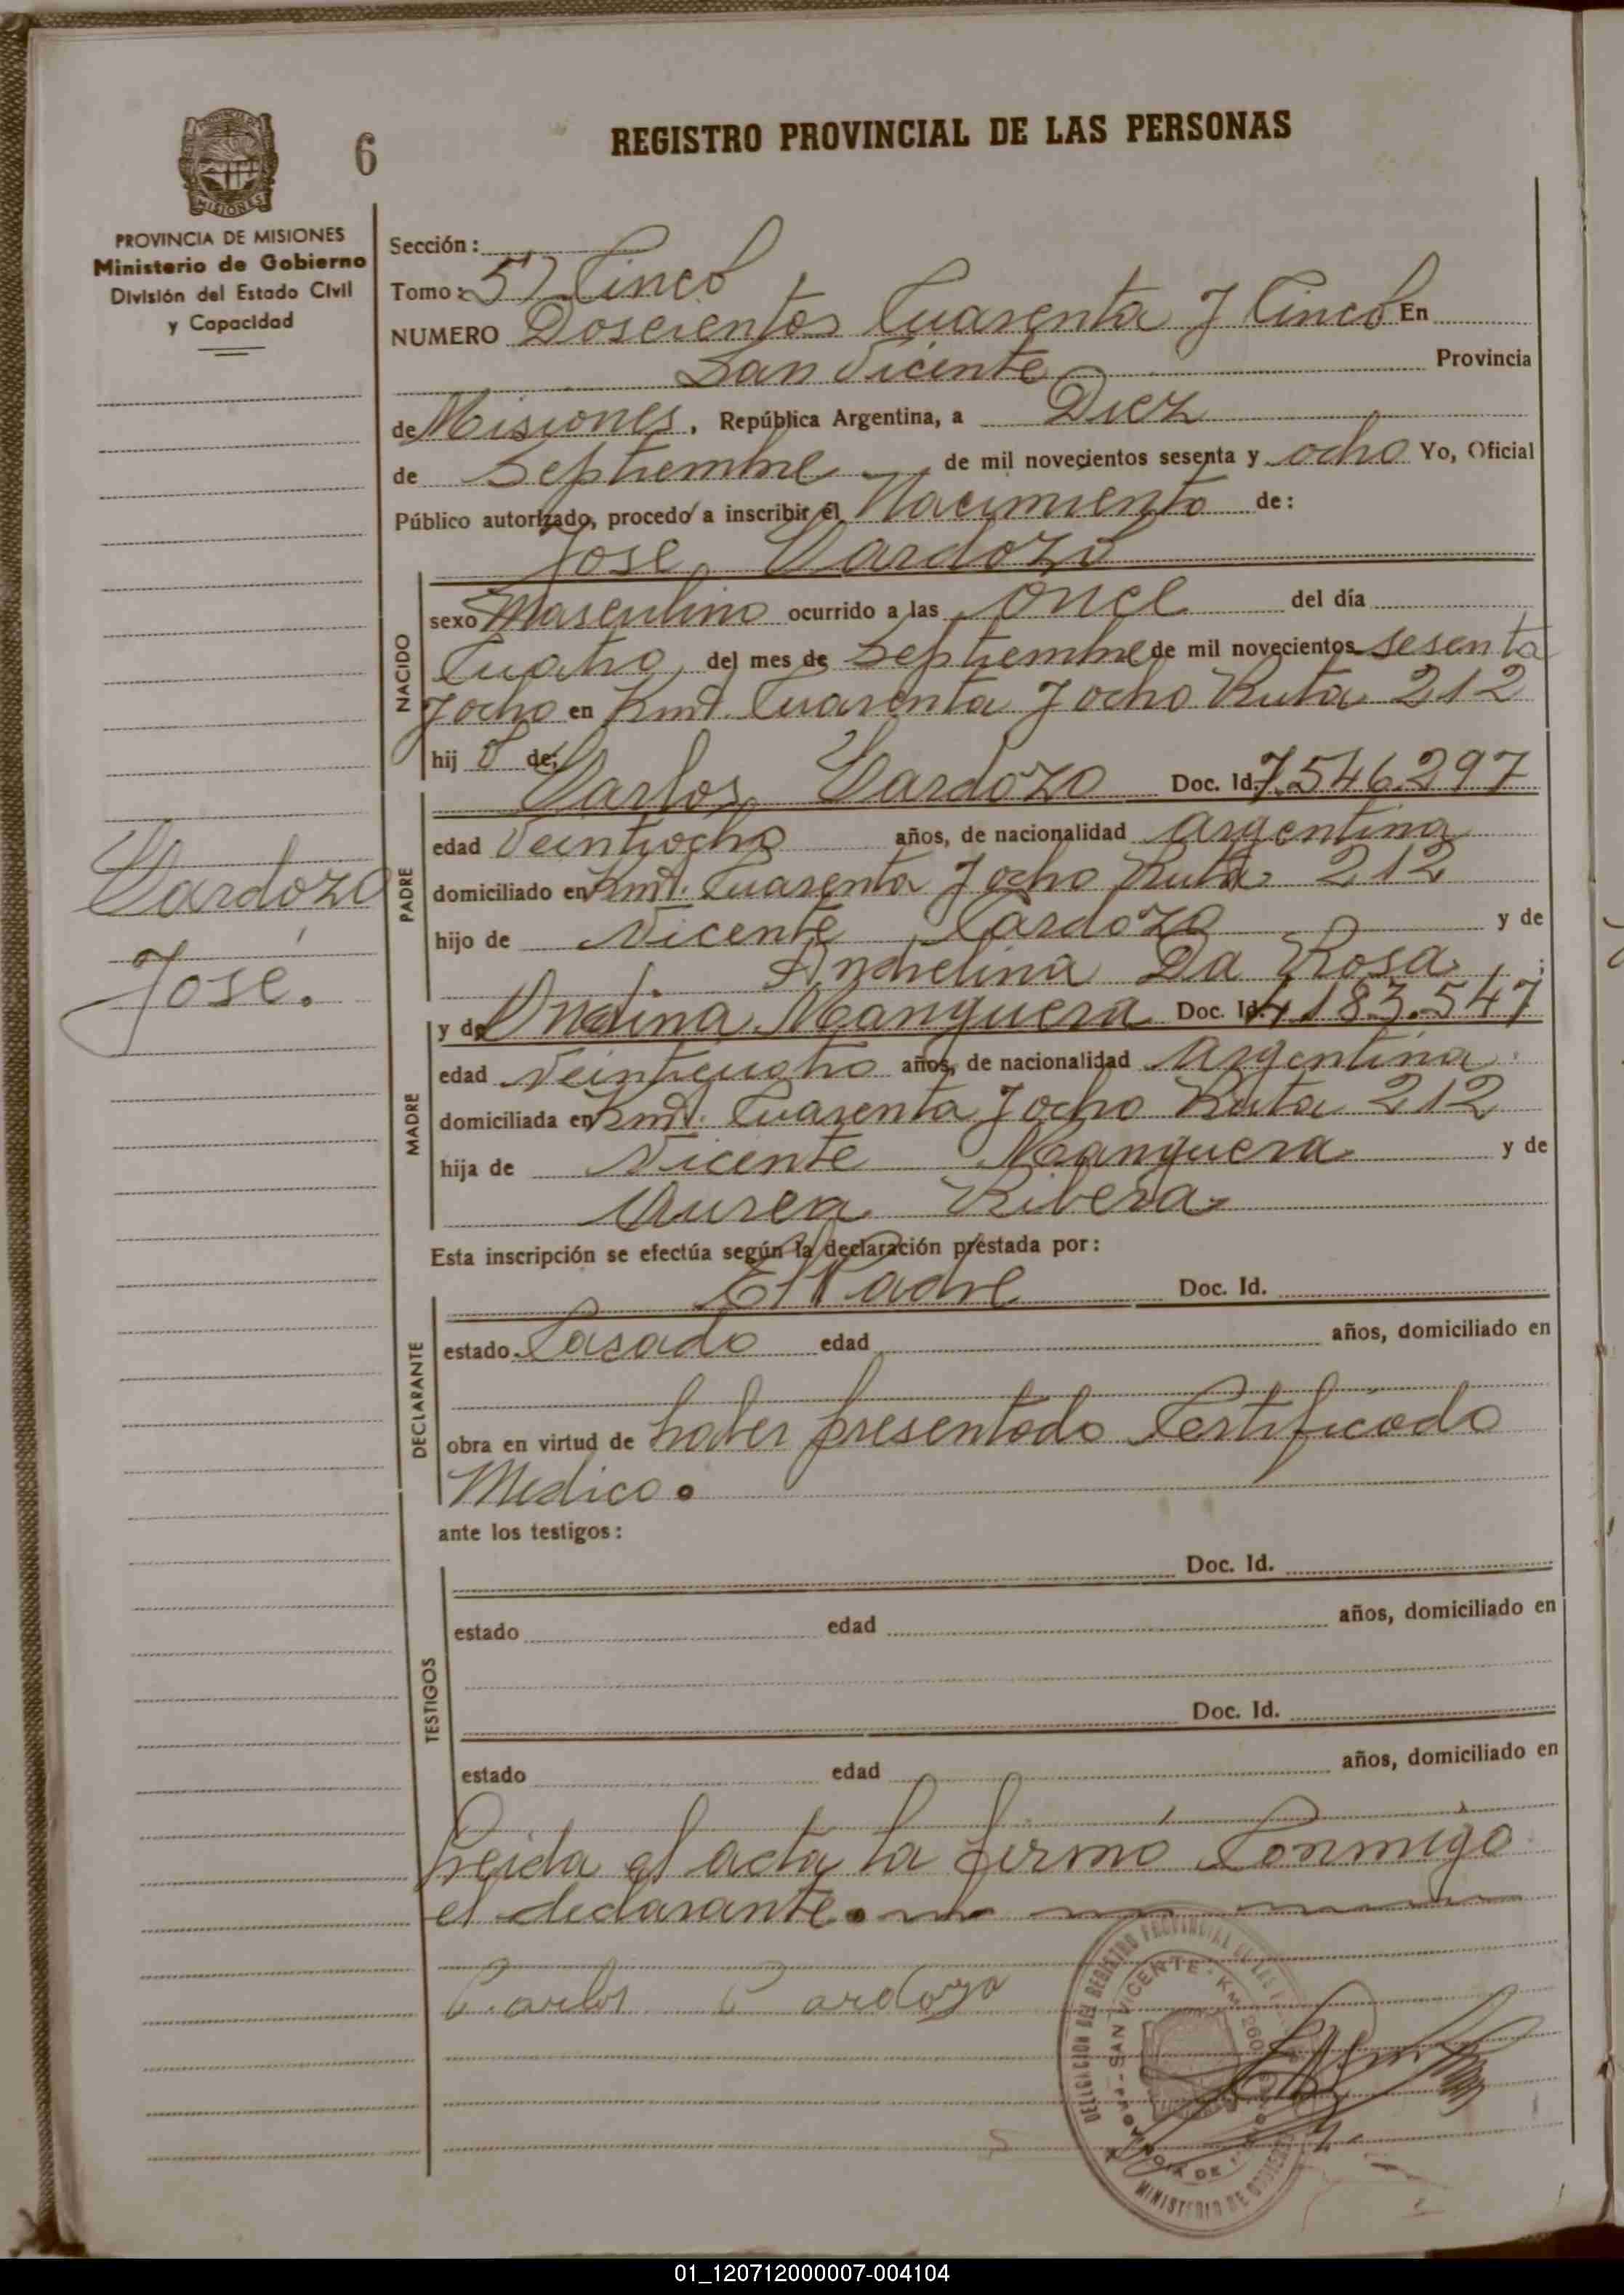 REGISTRO PROVINCIAL DE LAS PERSONAS
6
MISIONES
PROVINCIA DE MISIONES
Ministerio de Gobierno
División del Estado Civil
y Capacidad
Cardozo
José.
Sección:
Tomo: 5) Cinco
NUMERO Doscientos Cuarenta y Cinco En
San Vicente Provincia
de Misiones, República Argentina, a Diez
de Septiembre de mil novecientos sesenta y ocho Yo, Oficial
Público autorizado, procedo a inscribir el Nacimiento de:
José Cardozo
NACIDO
sexo Masculino ocurrido a las once del día
Cuatro del mes de Septiembre de mil novecientos sesenta
y ocho en Kmt. Cuarenta y ocho Ruta 212
hij o de:
Carlos Cardozo Doc. Id. 7.546.297
PADRE
edad Veintiocho años, de nacionalidad Argentina
domiciliado en Kmt. Cuarenta y ocho Ruta 212
hijo de Vicente Cardozo y de
Da Rosa ;
MADRE
y de Ondina Manguera Doc. Id. 4.183.547
edad Veinticuatro años, de nacionalidad Argentina
domiciliada en Kmt. Cuarenta y ocho Ruta 212
hija de Vicente Manguera y de
Aurea Ribera
Esta inscripción se efectúa según la declaración prestada por:
DECLARANTE
El Padre Doc. Id.
estado Casado edad años, domiciliado en
obra en virtud de haber presentado Certificado
Medico.
ante los testigos:
TESTIGOS
Doc. Id.
estado edad años, domiciliado en
Doc. Id.
estado edad años, domiciliado en
Leida el acta la firmó Conmigo
el declarante.
Carlos Cardozo
DELEGACION DEL REGISTRO PROVINCIAL DE LAS
SAN VICENTE - KM. 260
PROVINCIA DE MISIONES
MINISTERIO DE GOBIERNO
01_120712000007-004104